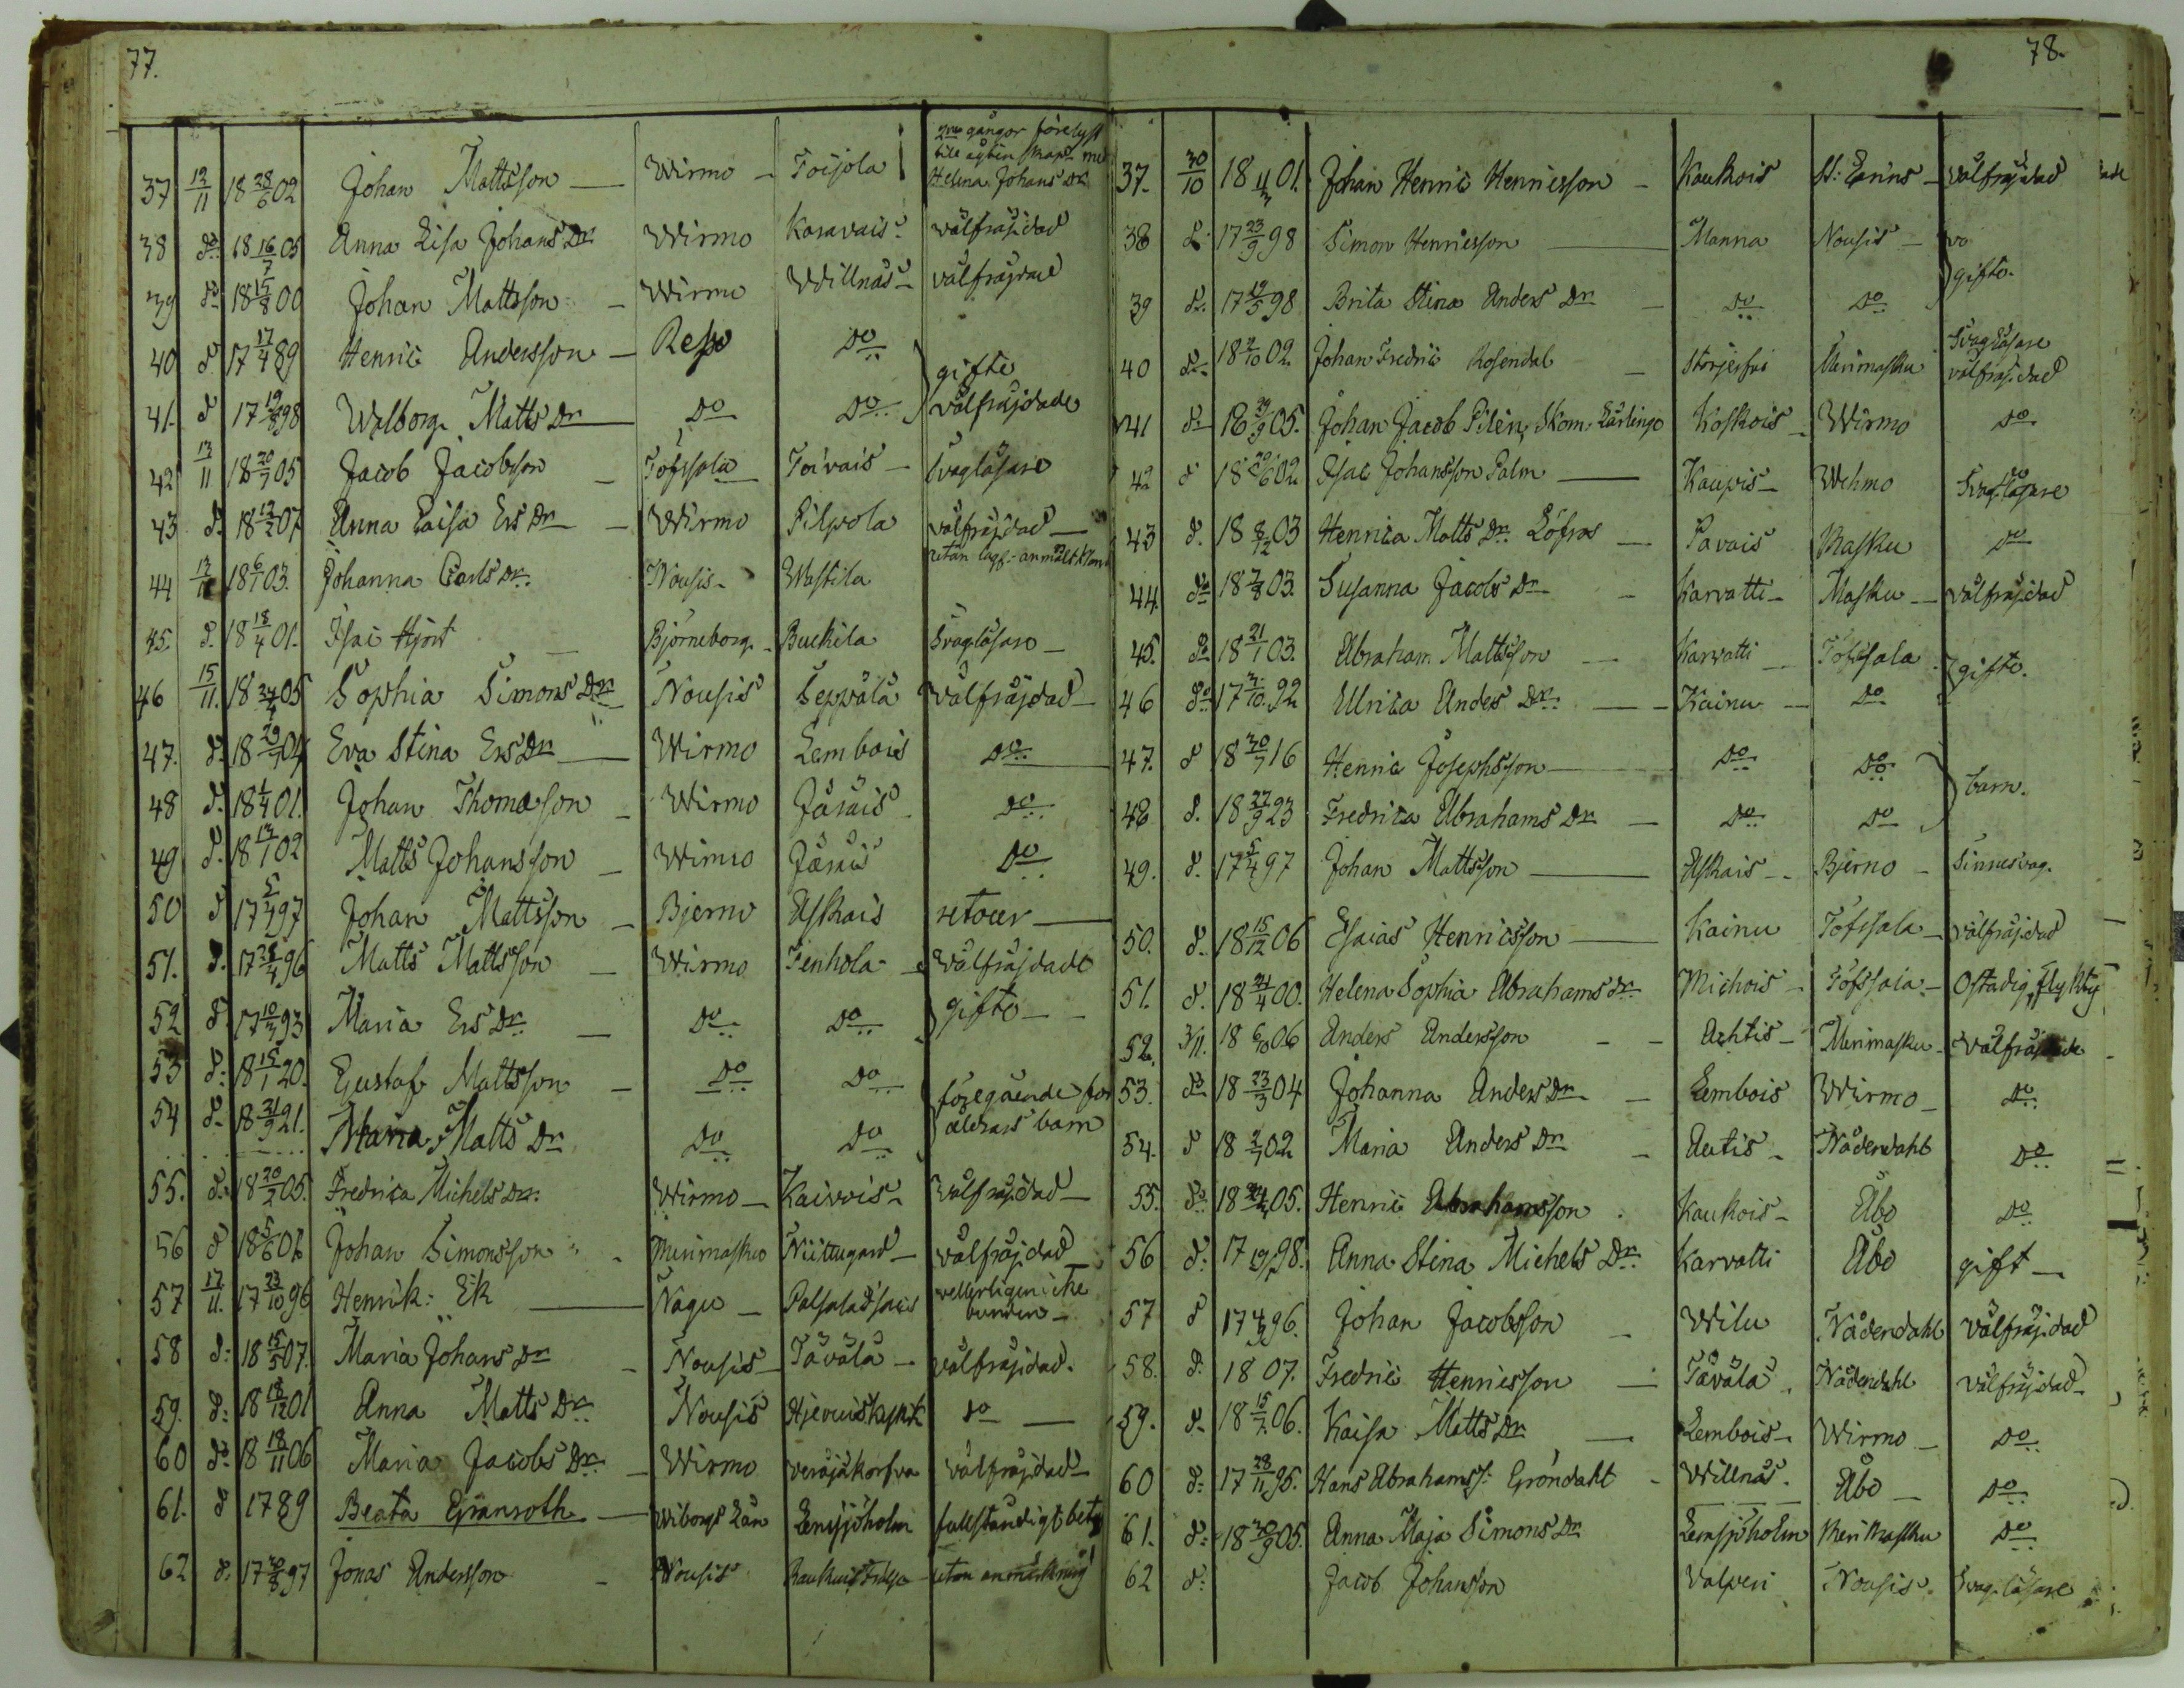 77.
2ne gångor förelyst
till äktenskap med
37 12/11 18 28/6 02 Johan Mattsson Wirmo Toijola Helena Johans Dr
38 do 18 16/7 05 Anna Lisa Johans Dr Wirmo Karavais välfräjdad
39 do 18 15/8 00 Johan Mattsson Wirmo Willnäs välfräjdad
40 d 17 17/4 89 Henric Andersson Reso Do gifte
41. d 17 19/8 98 Walborg Matts Dr Do Do välfräjdade
42 13/11 18 20/7 05 Jacob Jacobsson Töfsala Toivais Svagläsare
43 d. 18 12/2 07 Anna Caisa Ers Dr Wirmo Pilpola välfräjdad
44 13/11 18 6/1 03. Johanna Carls Dr. Nousis Wastila utan lagl. anmält kland
45. d. 18 18/4 01. Isac Hjort Björneborg Buckila Svagläsare
46 15/11. 18 24/4 05 Sophia Simons Dr Nousis Seppälä välfräjdad
47. d. 18 29/1 04 Eva Stina Ers Dr Wirmo Lembois Do
48 d. 18 1/4 01. Johan Thomasson Wirmo Järäis Do
49 d. 18 13/1 02 Matts Johansson Wirmo Järäis Do
50 d 17 5/4 97 Johan Mattsson Bjerno Askais retour
51. d. 17 28/4 96 Matts Mattsson Wirmo Tenhola Wälfräjdade
52 d. 17 10/7 93 Maria Ers Dr. Do Do gifte
53 d. 18 15/1 20. Gustaf Mattsson Do Do föregående för
54 d. 18 21/9 21. Maria Matts Dr Do Do äldrars barn
55. d. 18 20/2 05. Fredrica Michels Dr. Wirmo Kaivois Wälfräjdad
56 d 18 5/6 06 Johan Simonsson Merimasku Niittugård välfräjdad
57 17/11. 17 23/10 96 Henrik: Ek Nagu
58 d. 18 15/5 07. Maria Johans Dr Nousis Tävälä välfräjdad.
59. d. 18 18/12 01 Anna Matts Dr. Nousis do
60 do 18 18/11 06 Maria Jacobs Dr. Wirmo välfräjdad
61. d 1789 Beata Granroth Wiborgs Län Lemsjöholm fullständigt betyg
62 d. 17 20/8 97 Jonas Andersson Nousis utan anmärkning
78.
37. 30/10 18 11/3 01. Johan Henric Henricsson Kaukois St: Carins välfräjdad
38 d. 17 23/9 98 Simon Henricsson Manna Nousis Do
39 d. 17 19/5 98 Brita Stina Anders Dr Do Do gifte.
40 d. 18 2/10 02 Johan Fredric Rosendal Storjerfvi Merimasku Svagläsare välfräjdad
41 d. 18 29/9 05. Johan Jacob Pilén, Skom. Lärlinge Koskois Wirmo Do
42 d 18 29/6 02 Esac Johansson Palm Kaupis Wehmo Svagläsare
43 d. 18 8/12 03 Henrica Matts Dr. Löfros Pavais Masku Do
44. do 18 7/8 03. Susanna Jacobs Dr Karvatti Masku välfräjdad
45. do 18 21/1 03. Abraham Mattsson Karvatti Töfsala gifte.
46 do 17 3/10. 92 Ulrica Anders Dr. Kainu Do
47. d 18 30/7 16 Henric Josephsson Do Do barn.
48 d. 18 27/9 23 Fredrica Abrahams Dr Do Do
49. d. 17 5/4 97 Johan Mattsson Askais Bjerno Sinnesvag.
50. d. 18 15/12 06 Esaias Henricsson Kainu Töfsala välfräjdad
51. d. 18 21/4 00. Helena Sophia Abrahams Dr. Michois Töfsala Ostadig, flyktig
52. 3/11. 18 6/10 06 Anders Andersson Achtis Merimasku Välfräjdade
53. d. 18 23/3 04 Johanna Anders Dr Lembois Wirmo Do
54. d 18 2/7 02 Maria Anders Dr Autis Nådendahl Do
55. do 18 24/4 05. Henric Abrahamsson Kaukois Åbo Do
56 d. 17 19/7 98. Anna Stina Michels Dr. Karvatti Åbo gift
57 d 17 4/12 96. Johan Jacobsson Wilu Nådendahl Välfräjdad
58. d. 18 07. Fredric Henricsson Tävälä Nådendahl välfräjdad
59. d. 18 15/2 06. Kaisa Matts Dr Lembois Wirmo Do
60 d. 17 28/11 95. Hans Abrahamss: Gröndahl Willnäs. Åbo Do
61. d. 18 30/9 05. Anna Maja Simons Dr Lemsjöholm Merimasku Do
62 d. Jacob Johansson Valperi Nousis Svagläsare